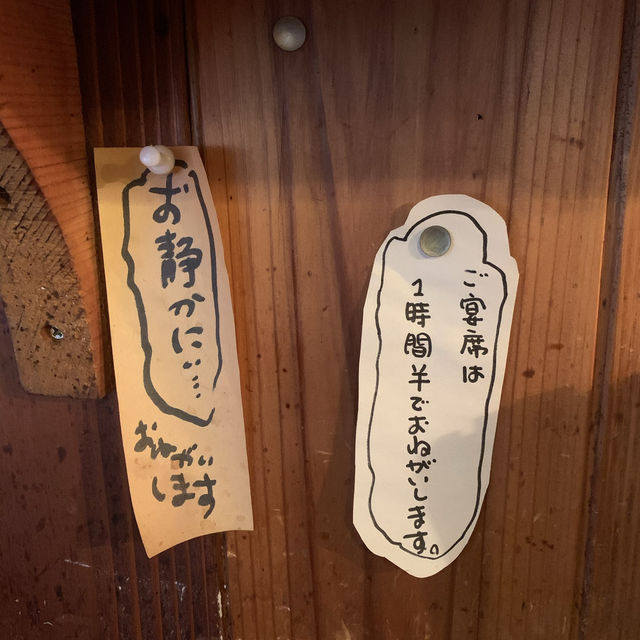 ご宴席は
1時間半でおねがいします。
お静かに…
おねがい
します